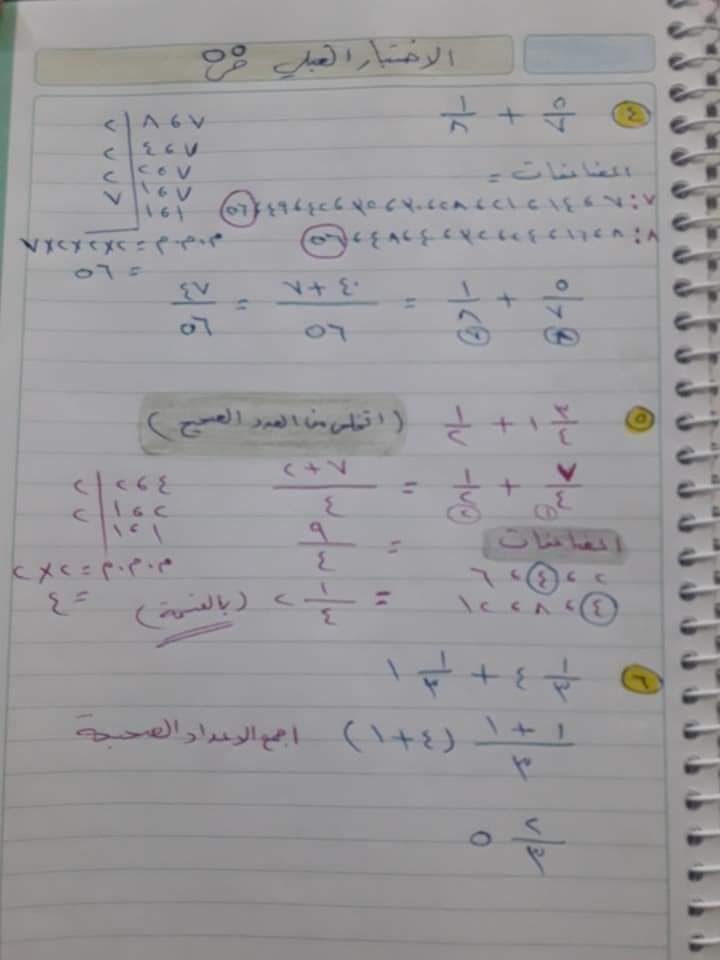 الاختبار القبلي
٤ ٥/٧ + ١/٨
٧ ، ٨ | ٢
٧ ، ٤ | ٢
٧ ، ٢ | ٢
٧ ، ١ | ٧
١ ، ١
م.م.م = ٢×٢×٢×٧
= ٥٦
المضاعفات =
٧: ٧، ١٤، ٢١، ٢٨، ٣٥، ٤٢، ٤٩، ٥٦
٨: ٨، ١٦، ٢٤، ٣٢، ٤٠، ٤٨، ٥٦
٥/٧ + ١/٨ = ٤٠ + ٧/٥٦ = ٤٧/٥٦
٨ ٧
٥ ١ ٣/٤ + ١/٢ (اتخلص من العدد الصحيح)
٧/٤ + ١/٢ = ٧ + ٢/٤
١ ٢
= ٩/٤
= ٢ ١/٤ (بالقسمة)
المضاعفات
٢، ٤، ٦
٤، ٨، ١٢
٤ ، ٢ | ٢
٢ ، ١ | ٢
١ ، ١
م.م.م = ٢×٢
= ٤
٦ ٤ ١/٣ + ١ ١/٣
١ + ١/٣ (٤+١) اجمع الاعداد الصحيحة
٥ ٢/٣